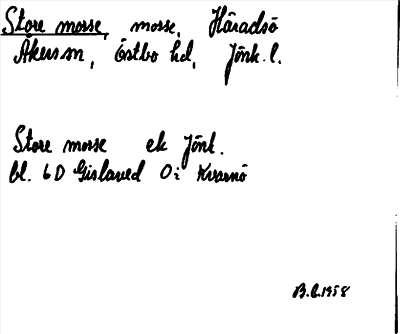 Store mosse, mosse, Häradsö
Åkers sn, Östbo hd, Jönk. l.
Store mosse ek Jönk.
bl. 6D Gislaved 0i Kvarnö
B.L. 1958